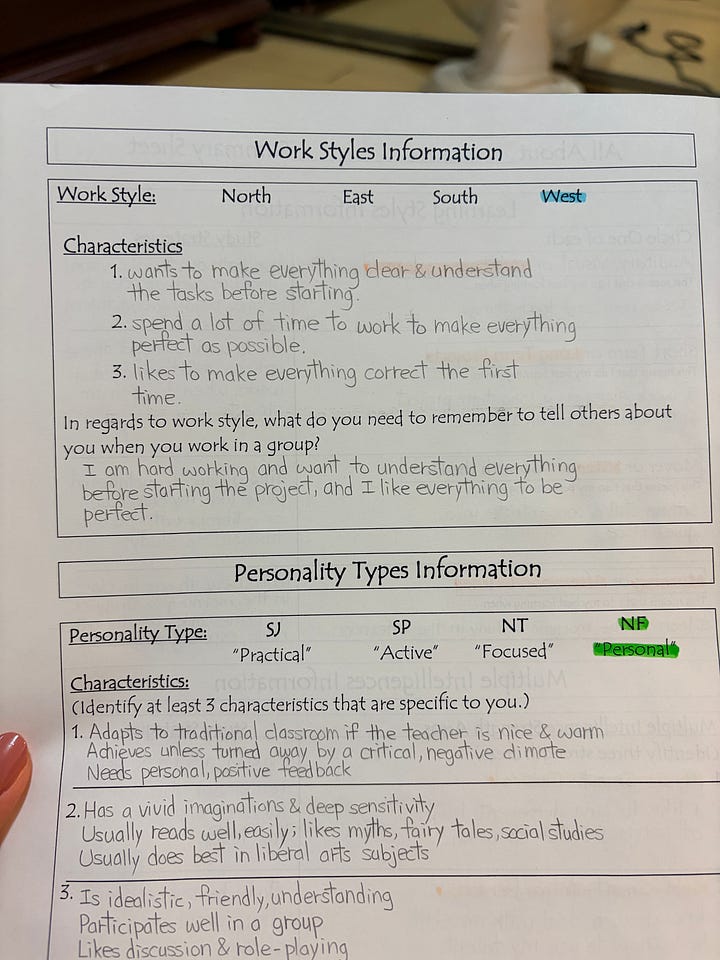 Work Styles Information
Work Style: North East South West
Characteristics
1. wants to make everything clear & understand
the tasks before starting.
2. spend a lot of time to work to make everything
perfect as possible.
3. likes to make everything correct the first
time.
In regards to work style, what do you need to remember to tell others about
you when you work in a group?
I am hard working and want to understand everything
before starting the project, and I like everything to be
perfect.
Personality Types Information
Personality Type: SJ SP NT NF
"Practical" "Active" "Focused" "Personal"
Characteristics:
(Identify at least 3 characteristics that are specific to you.)
1. Adapts to traditional classroom if the teacher is nice & warm
Achieves unless turned away by a critical, negative climate
Needs personal, positive feedback
2. Has a vivid imaginations & deep sensitivity
Usually reads well, easily; likes myths, fairy tales, social studies
Usually does best in liberal arts subjects
3. Is idealistic, friendly, understanding
Participates well in a group
Likes discussion & role-playing